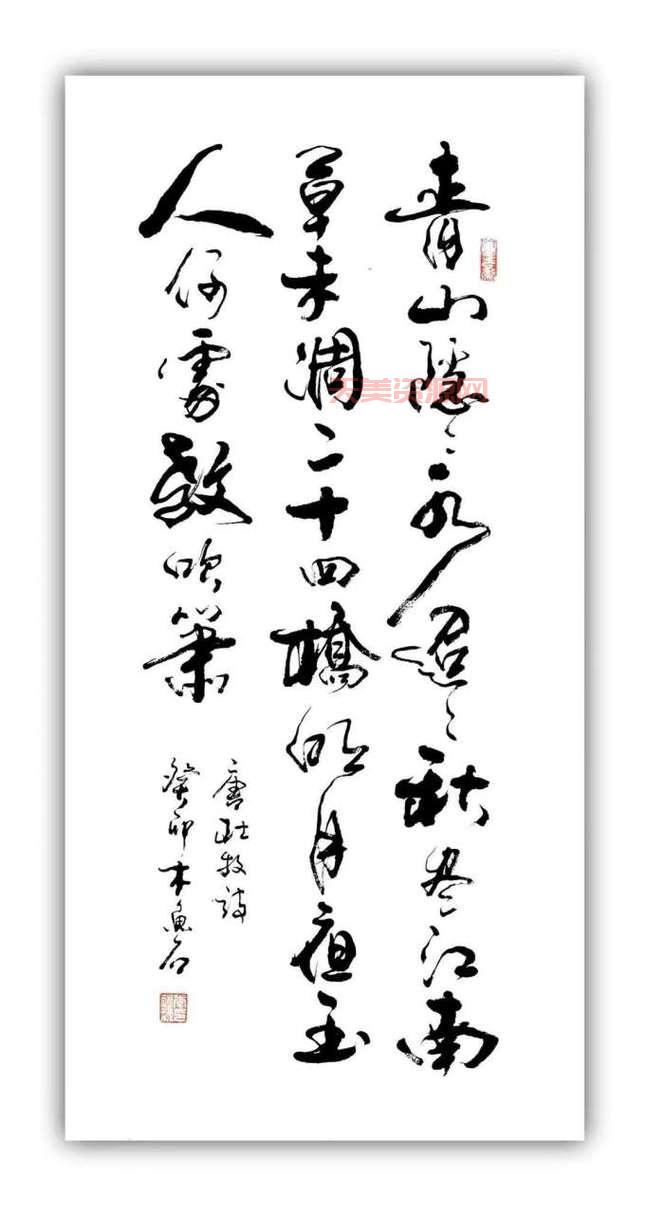 青山隱〻水迢〻秋尽江南
草未凋二十四橋明月夜玉
人何處教吹簫
唐杜牧詩
癸卯木魚石
天美资源网